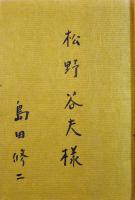 松野谷夫様
島田修二